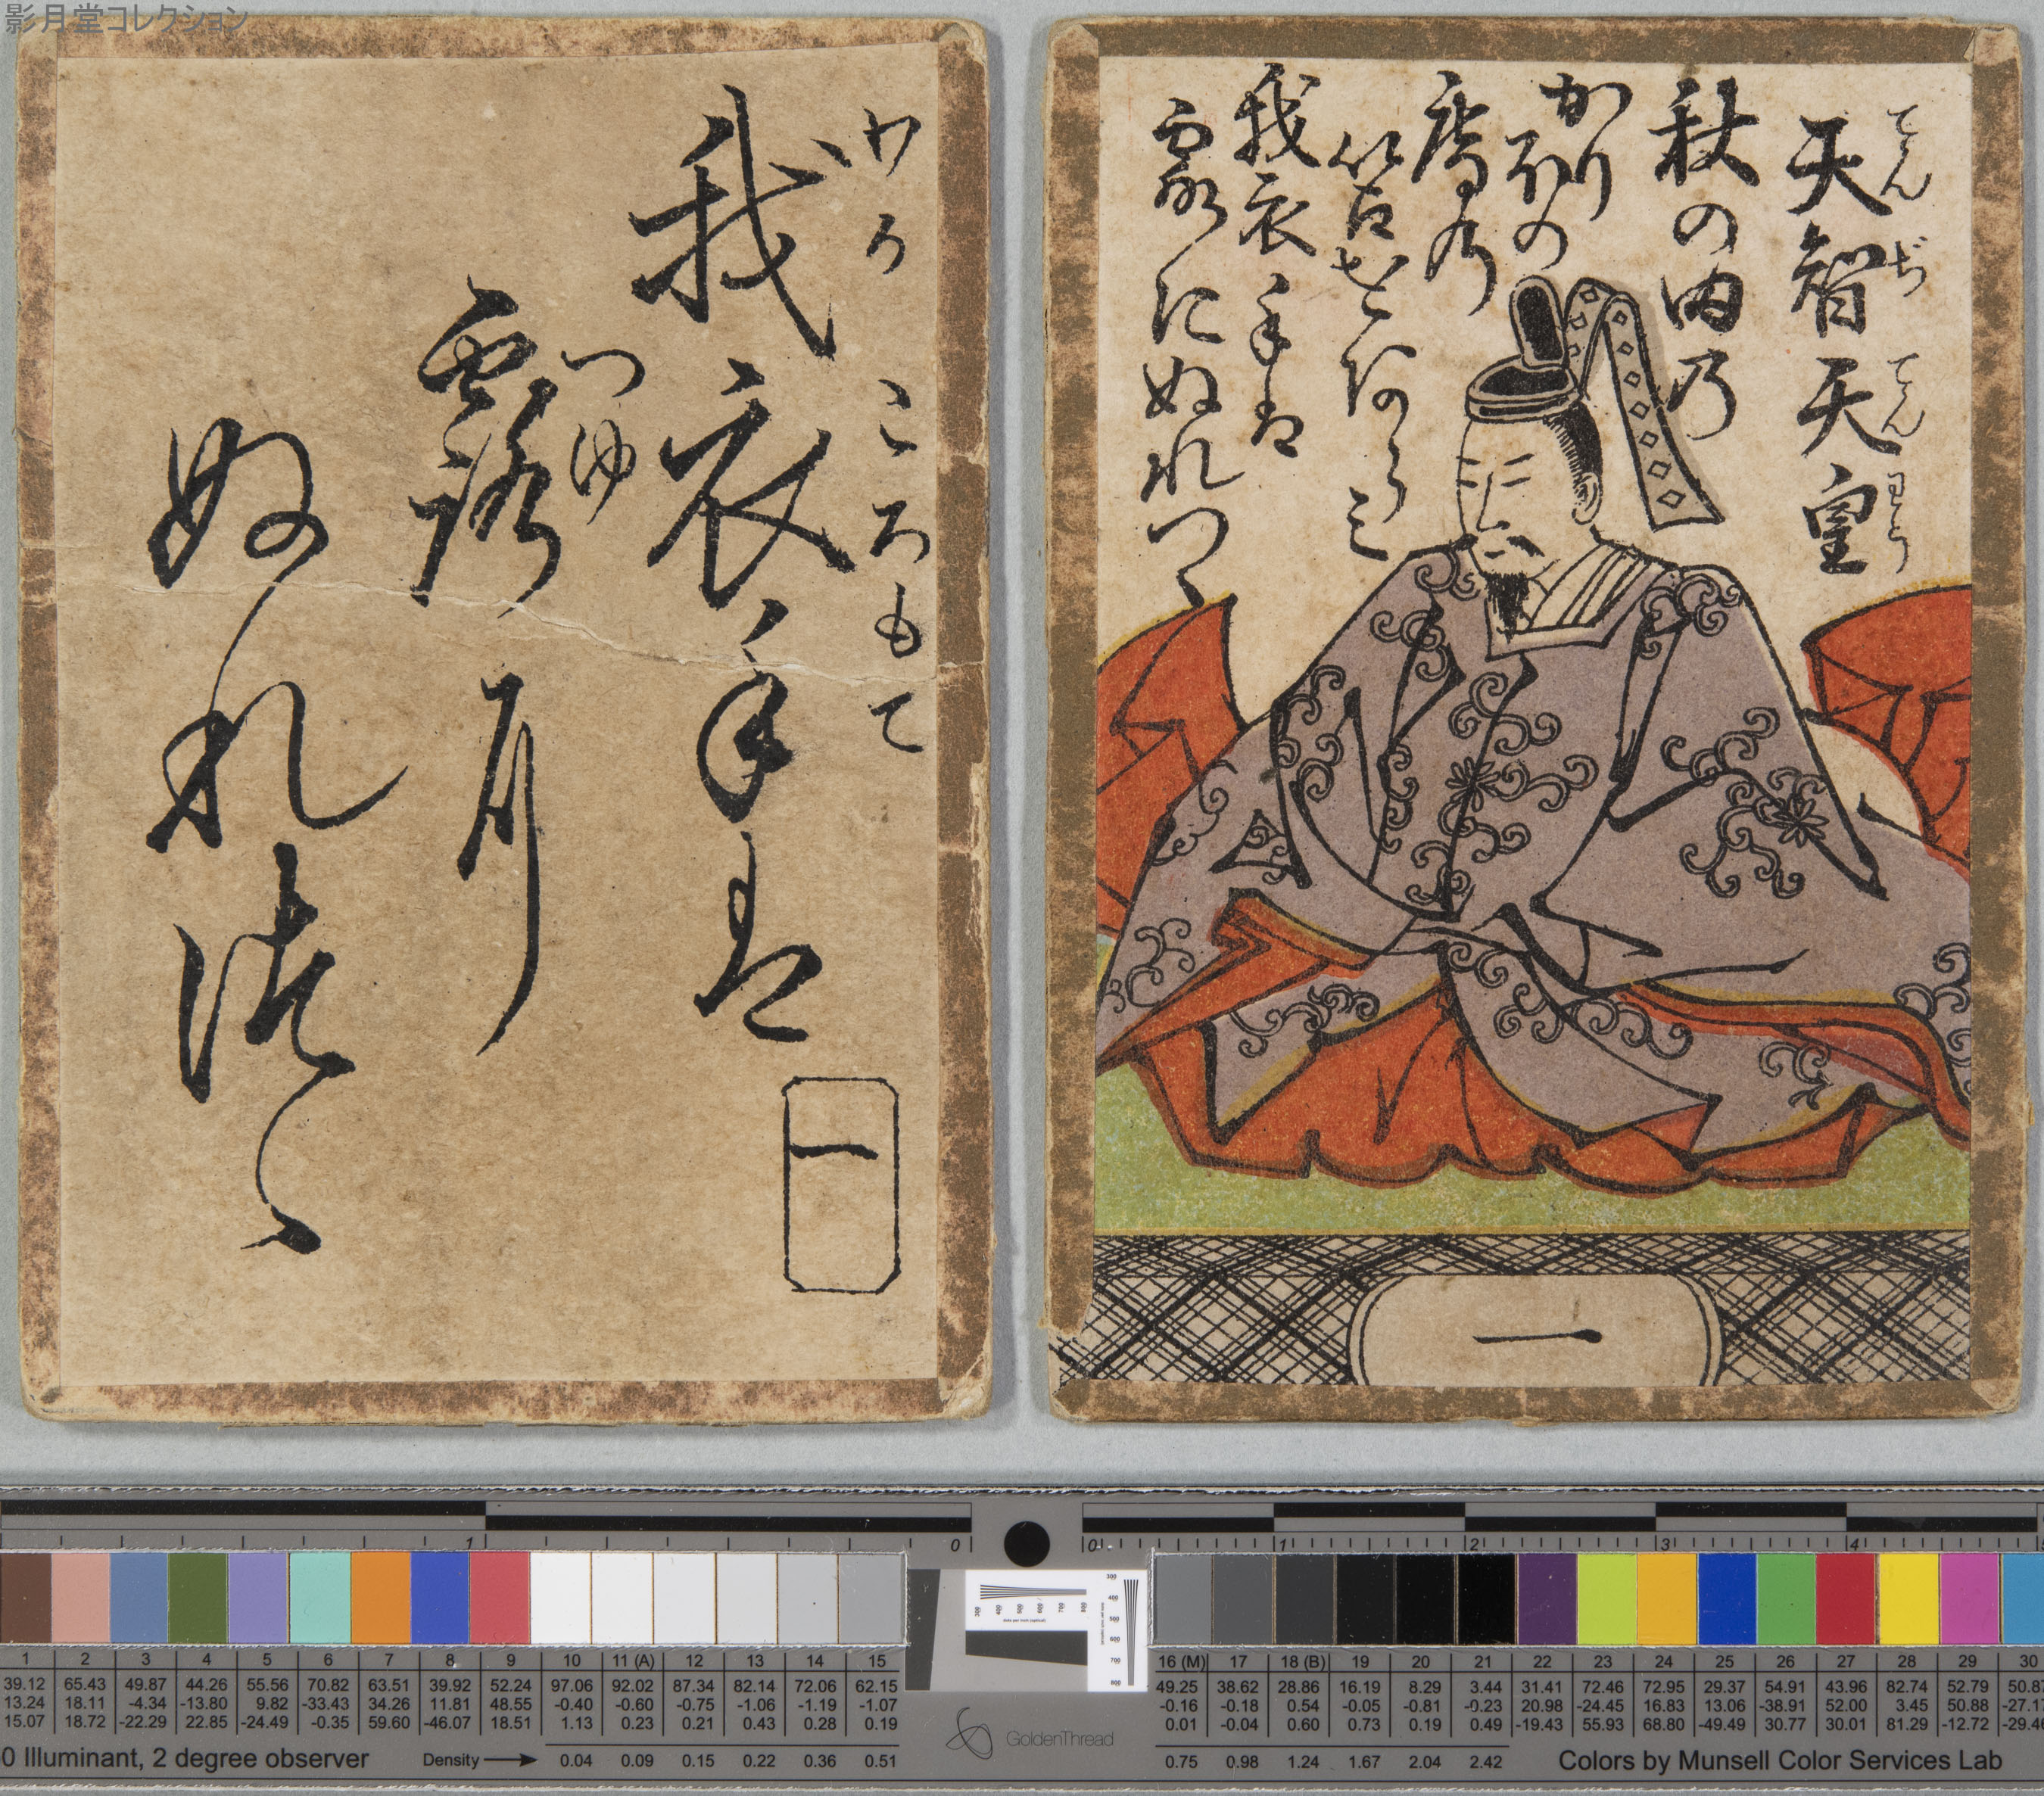 影月堂コレクション
てんぢてんわう
天智天皇
秋の田乃
かり
ほの
庵乃
我衣手は
露にぬれつゝ
一
わか ころもて
我衣手は
つゆ
露に
ぬれつゝ
一
1 0
0 1 2 3 4
1 2 3 4 5 6 7 8 9 10 11 (A) 12 13 14 15
39.12 65.43 49.87 44.26 55.56 70.82 63.51 39.92 52.24 97.06 92.02 87.34 82.14 72.06 62.15
13.24 18.11 -4.34 -13.80 9.82 -33.43 34.26 11.81 48.55 -0.40 -0.60 -0.75 -1.06 -1.19 -1.07
15.07 18.72 -22.29 22.85 -24.49 -0.35 59.60 -46.07 18.51 1.13 0.23 0.21 0.43 0.28 0.19
0 Illuminant, 2 degree observer
Density 0.04 0.09 0.15 0.22 0.36 0.51
GoldenThread
16 (M) 17 18 (B) 19 20 21 22 23 24 25 26 27 28 29 30
49.25 38.62 28.86 16.19 8.29 3.44 31.41 72.46 72.95 29.37 54.91 43.96 82.74 52.79 50.87
-0.16 -0.18 0.54 -0.05 -0.81 -0.23 20.98 -24.45 16.83 13.06 -38.91 52.00 3.45 50.88
0.01 -0.04 0.60 0.73 0.19 0.49 -19.43 55.93 68.80 -49.49 30.77 30.01 81.29 -12.72
0.75 0.98 1.24 1.67 2.04 2.42
Colors by Munsell Color Services Lab